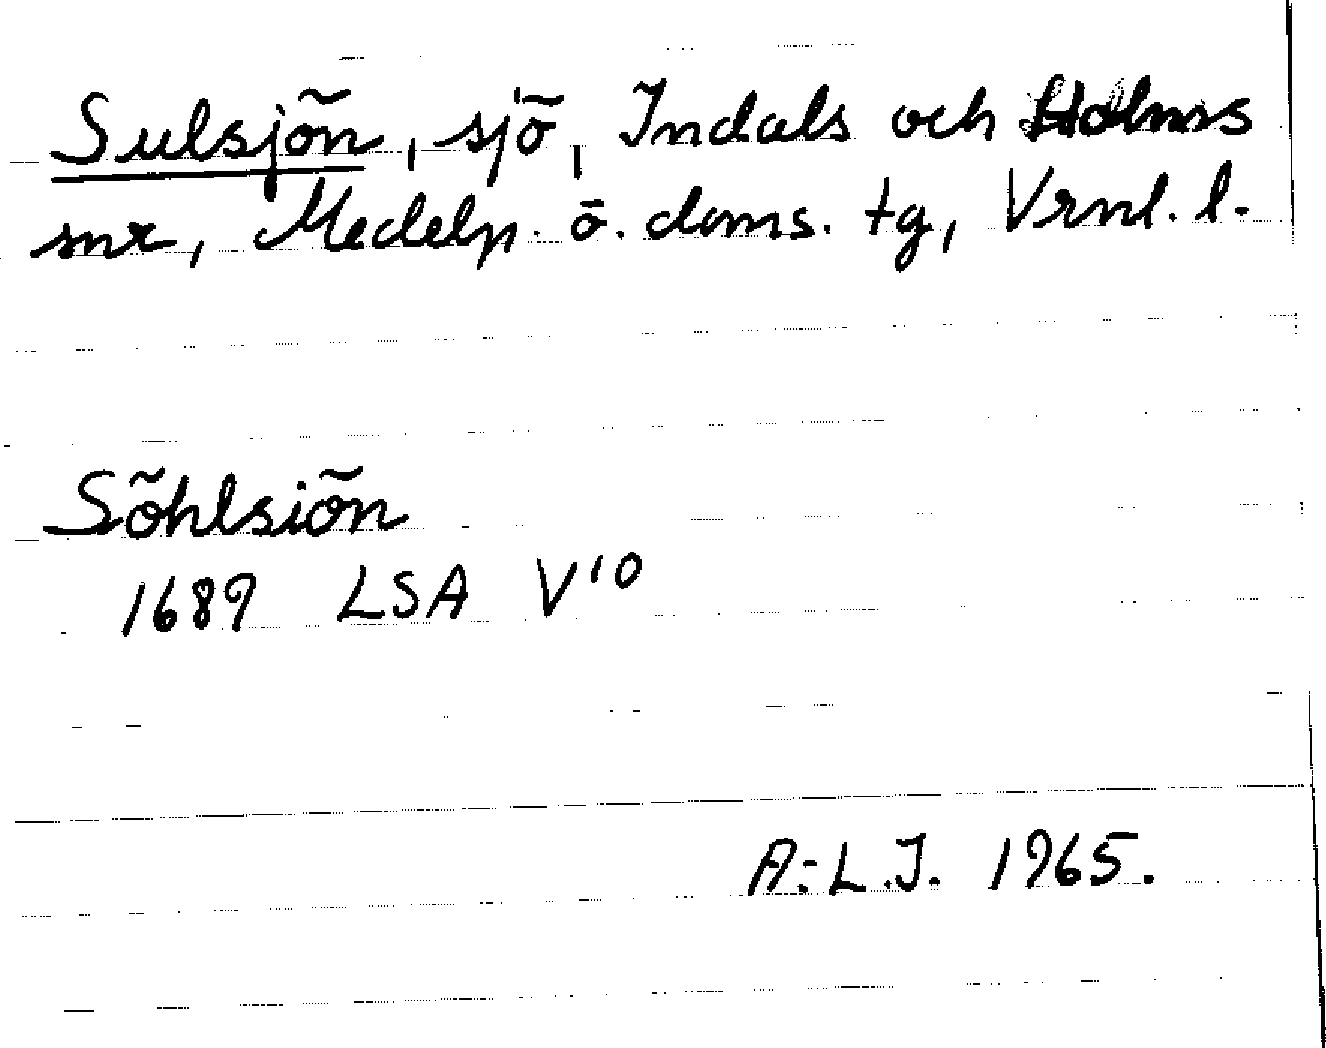 Sulsjön, sjö, Indals och Holms
snr, Medelp. ö. doms. tg, Vrnl. l.
Söhlsiön
1689 LSA V10
A:L.J. 1965.